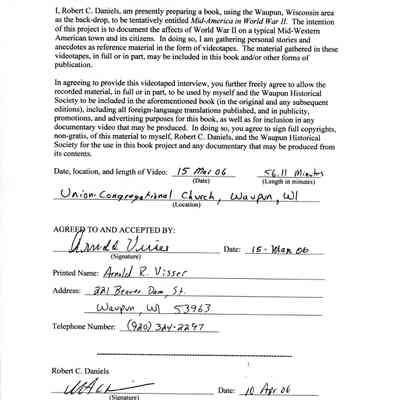 I, Robert C. Daniels, am presently preparing a book, using the Waupun, Wisconsin area
as the back-drop, to be tentatively entitled Mid-America in World War II. The intention
of this project is to document the affects of World War II on a typical Mid-Western
American town and its citizens. In doing so, I am gathering personal stories and
anecdotes as reference material in the form of videotapes. The material gathered in these
videotapes, in full or in part, may be included in this book and/or other forms of
publication.
In agreeing to provide this videotaped interview, you further freely agree to allow the
recorded material, in full or in part, to be used by myself and the Waupun Historical
Society to be included in the aforementioned book (in the original and any subsequent
editions), including all foreign-language translations published, and in publicity,
promotions, and advertising purposes for this book, as well as for inclusion in any
documentary video that may be produced. In doing so, you agree to sign full copyrights,
non-gratis, of this material to myself, Robert C. Daniels, and the Waupun Historical
Society for the use in this book project and any documentary that may be produced from
its contents.
Date, location, and length of Video: 15 Mar 06 56.11 Minutes
(Date) (Length in minutes)
Union-Congregational Church, Waupun, WI
(Location)
AGREED TO AND ACCEPTED BY:
Arnold Visser Date: 15-Mar 06
(Signature)
Printed Name: Arnold R. Visser
Address: 221 Beaver Dam, St.
Waupun, WI 53963
Telephone Number: (920) 324-2297
Robert C. Daniels
Date: 10 Apr 06
(Signature)